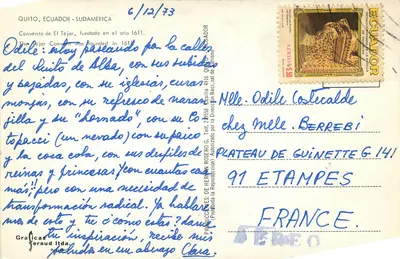 6/12/73
QUITO, ECUADOR - SUDAMERICA
Convento de El Tejar, fundado en el año 1611.
Odile: estoy paseando por la calles
del Quito de Alba, con sus subidas
y bajadas, con su iglesias, curas
monjas, con su refresco de naran-
jilla y su "hornado", con su Co-
topacci (un nevado) con su parico
y la coca cola, con sus desfiles de
reinas y princesas (con cuantas cosas
mas!) pero con una necesidad de
transformación radical. Ya hablare
mos de esto y tu ó cómo estas? dame
tu inspiración, recibe mis
saludos en un abrazo Clara.
Graficas
Feraud ltda.
ECUADOR
AEREO
Mlle. Odile Costecalde
chez Melle. BERREBI
PLATEAU DE GUINETTE G 141
91 ETAMPES
FRANCE.
AEREO